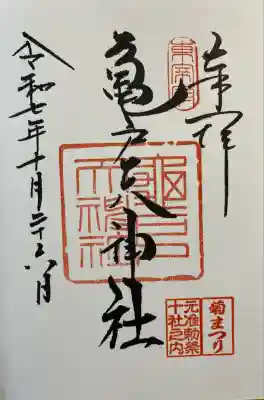 奉拝
東宰府
亀戸天神社
龜戸天神社
令和七年十月二十六日
菊まつり
元准勅祭
十社之内